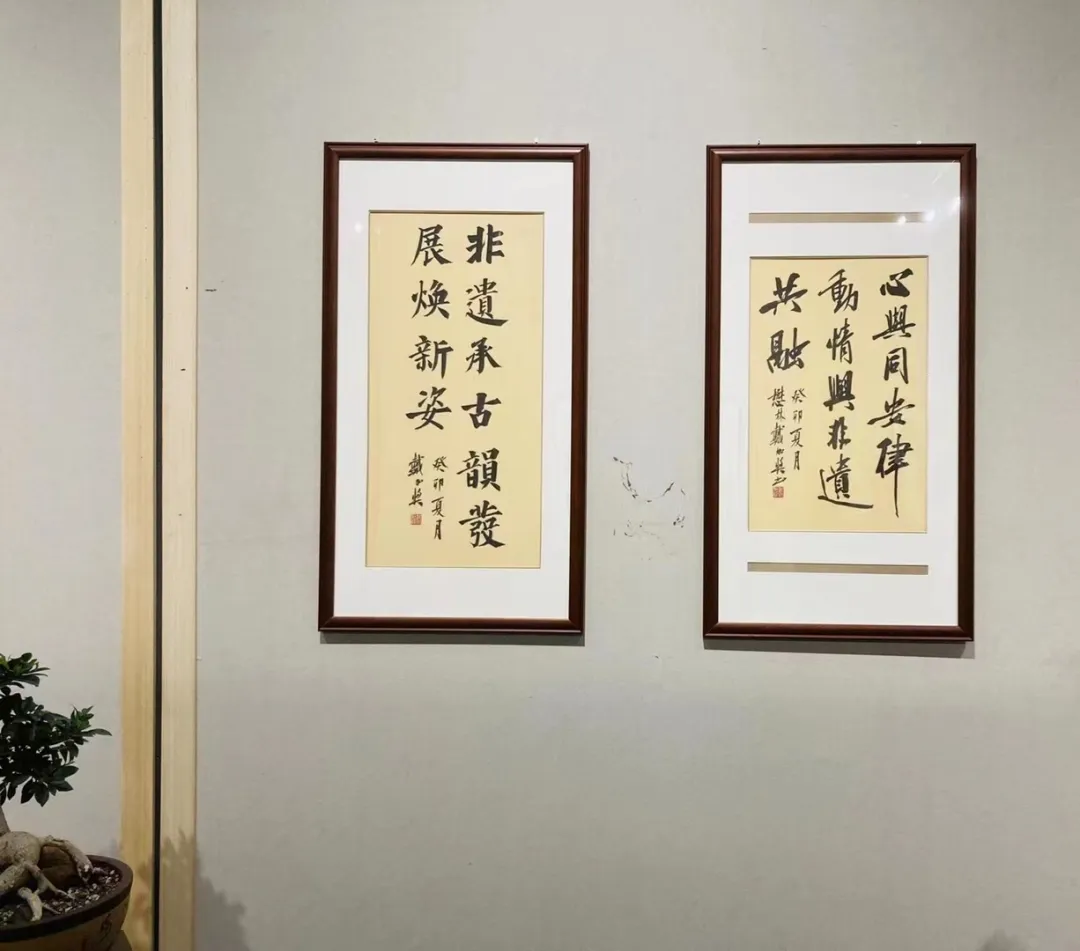 非遺承古韻發
展煥新姿
癸卯夏月
戴
心與同安律
動情與非遺
共融
癸卯夏月
懋林戴